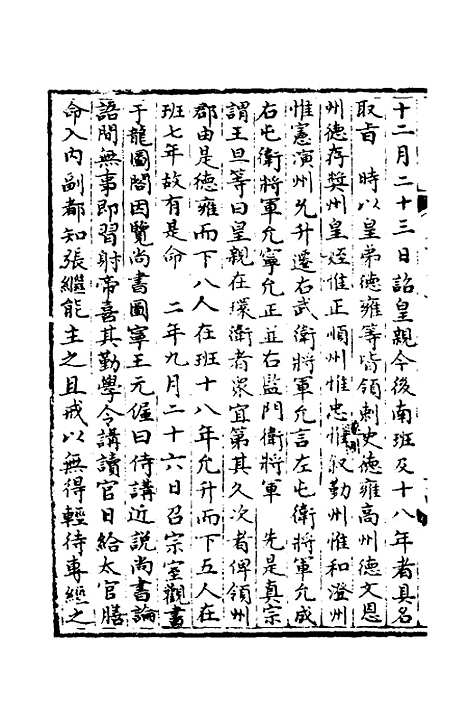 十二月二十三日詔皇親今後南班及十八年者具名
取旨　時以皇弟德雍等皆領刺史德雍高州德文恩
州德存奬州皇姪惟正順州惟忠惟叙勤州惟和澄州
惟憲演州允升遷右武衛將軍允言左屯衛將軍允成
右屯衛將軍允寧允正並右監門衛將軍　先是真宗
謂王旦等曰皇親在環衛者衆宜第其久次者俾領州
郡由是德雍而下八人在班十八年允升而下五人在
班七年故有是命　二年九月二十六日召宗室觀書
于龍圖閣因覽尚書圖寧王元偓曰侍講近說尚書論
語間無事即習射帝喜其勤學令講讀官日給太官膳
命入內副都知張繼能主之且戒以無得輕待專經之